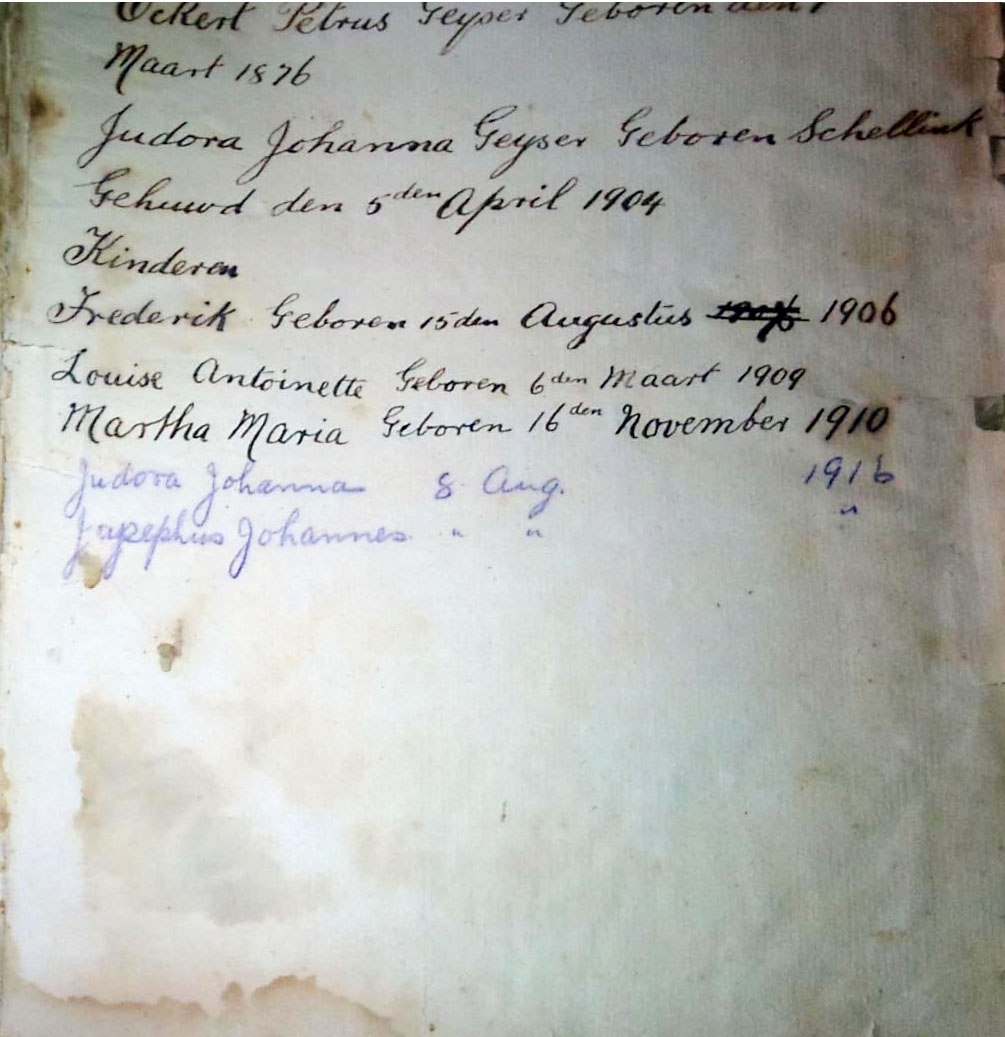 Ockert Petrus Geyser Geboren den 1
Maart 1876
Judora Johanna Geyser Geboren Schellink
Gehuwd den 5den April 1904
Kinderen
Frederik Geboren 15den Augustus 1906
Louise Antoinette Geboren 6den Maart 1909
Martha Maria Geboren 16den November 1910
Judora Johanna 8 Aug. 1916
Johannes " " "